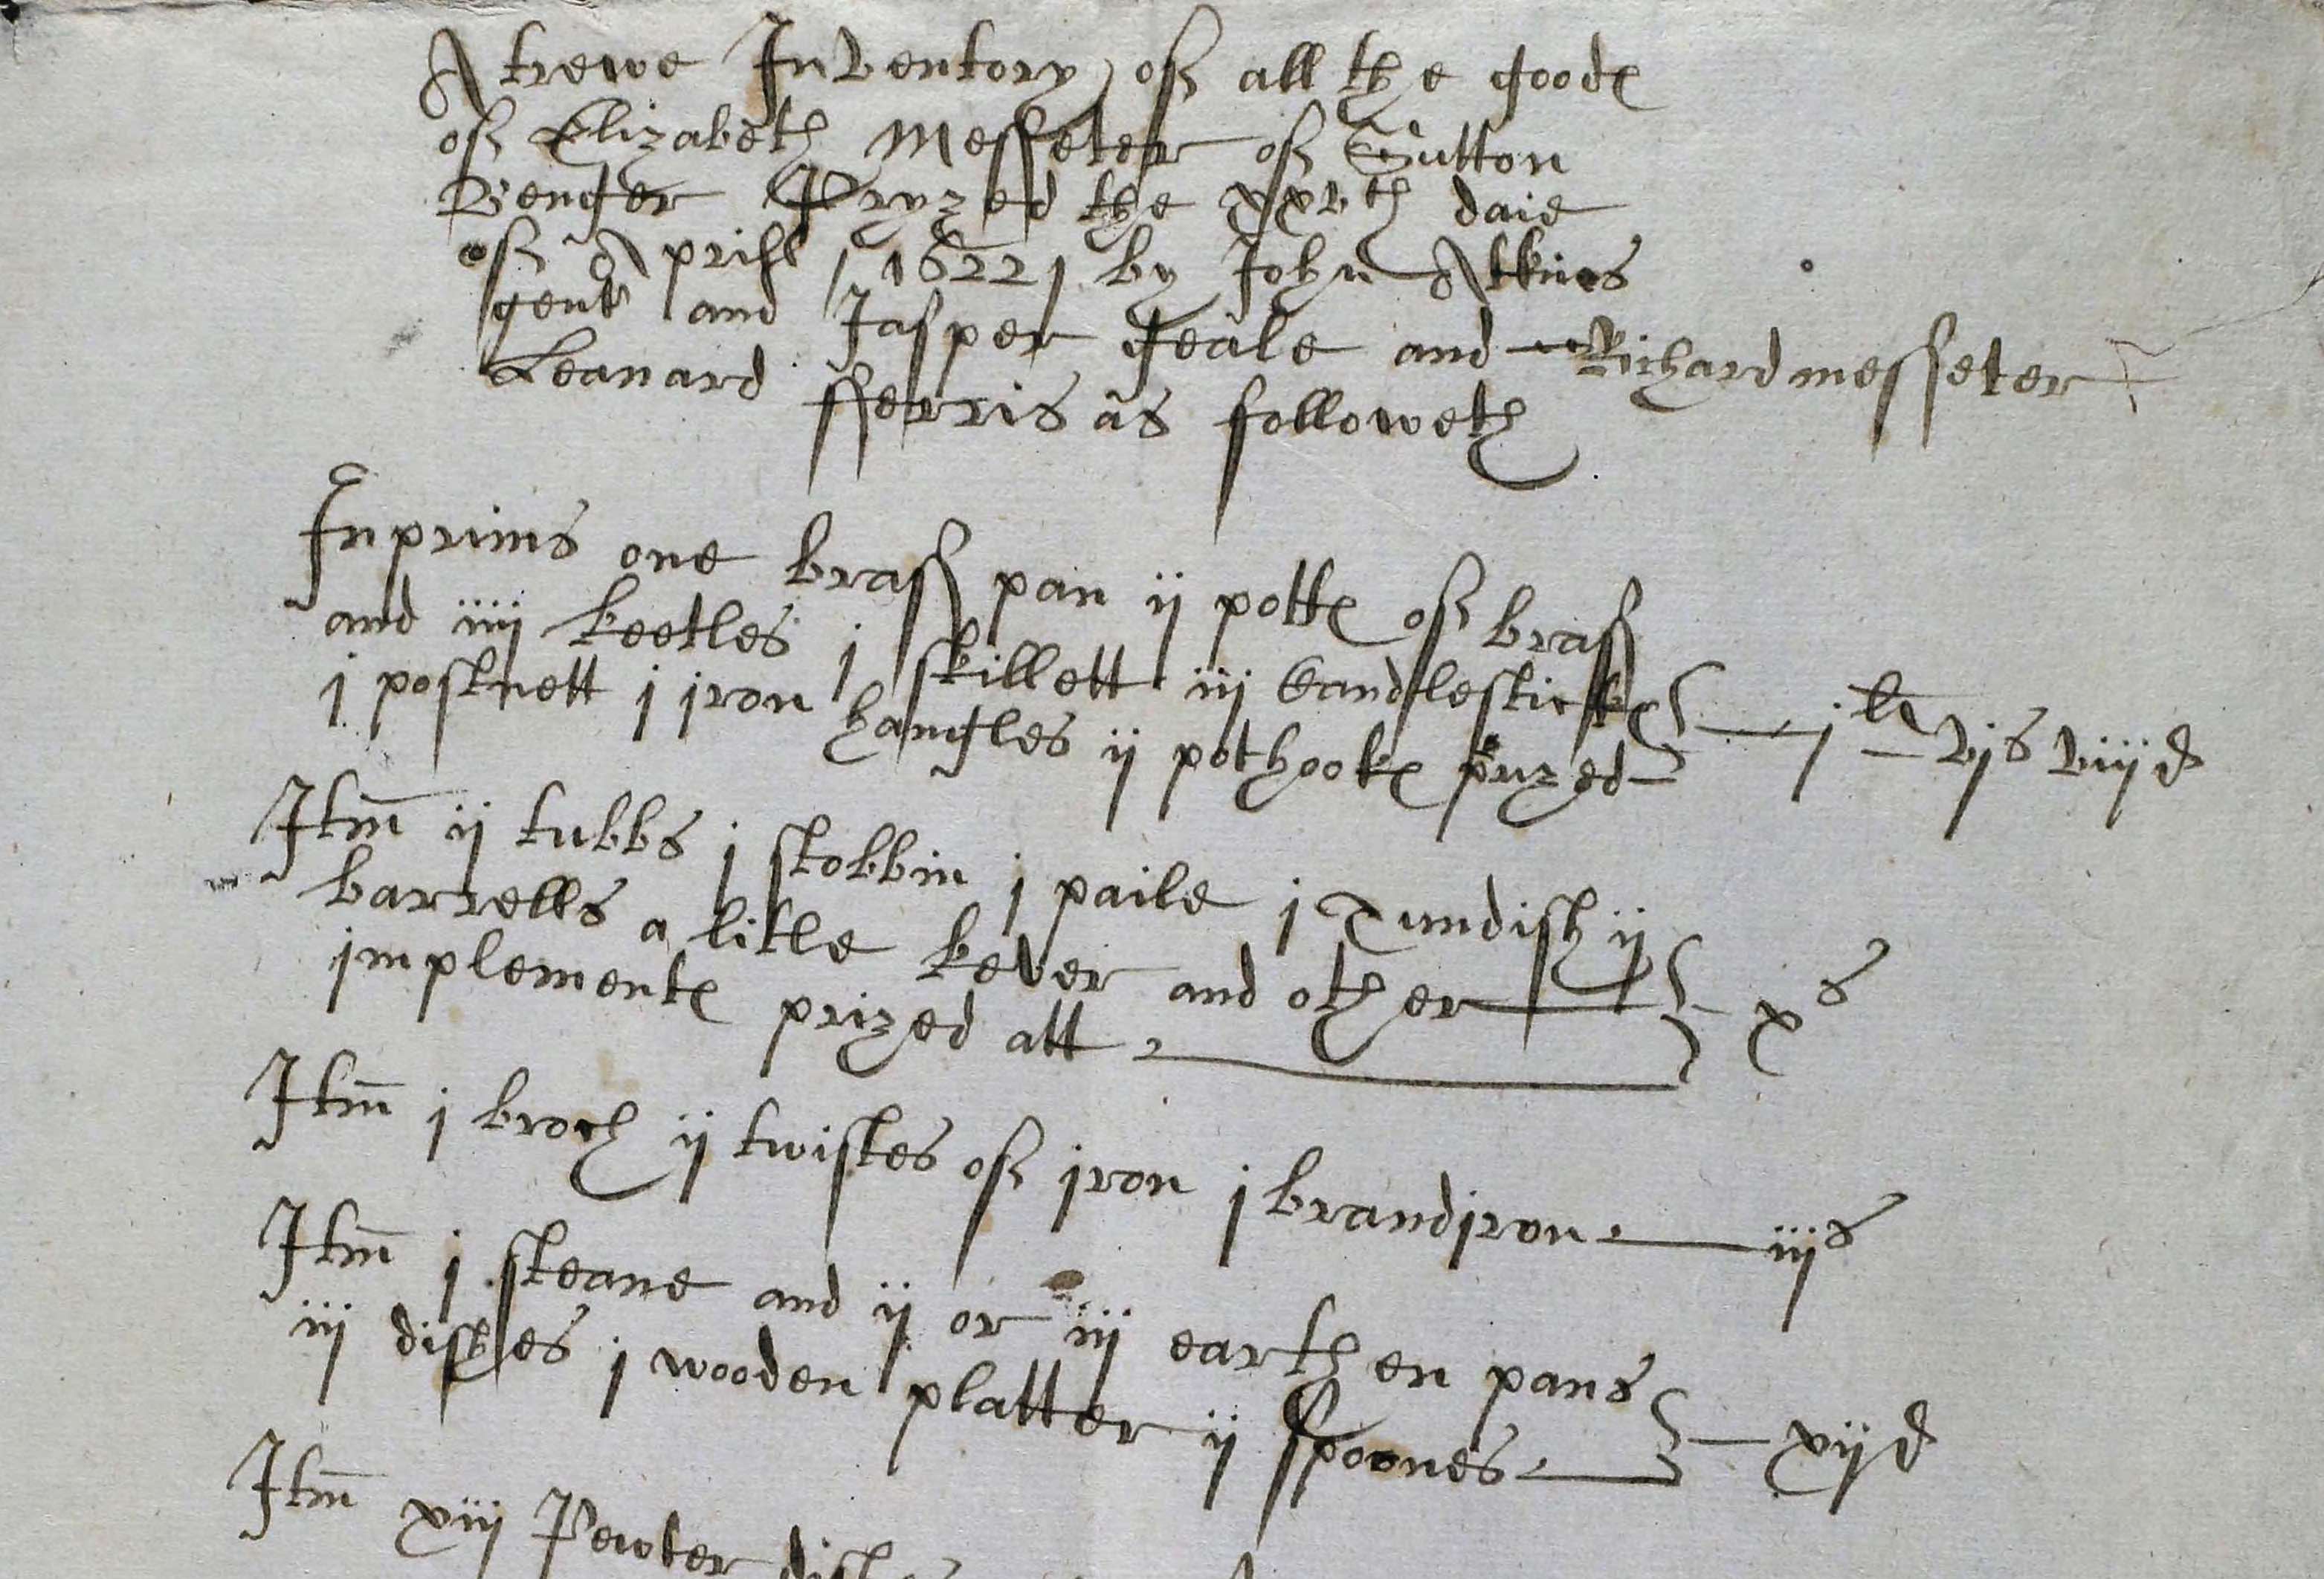 A trewe Inventory of all the goodes
of Elizabeth Messeter of Sutton
Benger Pryzed the xxvth daie
of Aprill 1622 by John Atkins
gent and Jasper Geale and Richard messeter
Leanard fferris as followeth
Inprimis one brass pan ij pottes of brass
and iiij keetles j skillett iij Candlestickes
j postnett j jron hangles ij pothookes prized j li vjs viijd
Itm ij tubbs j stobbin j paile j Tundish ij
barrells a litle kever and other
implementes prized att xs
Itm j broch ij twistes of jron j brandjron iijs
Itm j steane and ij or iij earthen pans
iij dishes j wooden platter ij spoones xijd
Itm xiij Pewter dishes